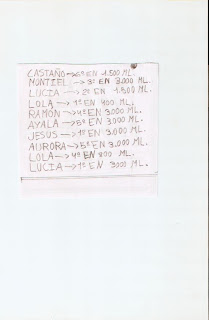 CASTAÑO→6º EN 1.500 ML.
MONTIEL→3º EN 3.000 ML.
LUCIA→2º EN 1.500 ML.
LOLA→1ª EN 400 ML.
RAMÓN→4º EN 3.000 ML.
AYALA→5º EN 3.000 ML.
JESUS→1º EN 3.000 ML.
AURORA→5ª EN 3.000 ML.
LOLA→4º EN 800 ML.
LUCIA→1ª EN 3000 ML.